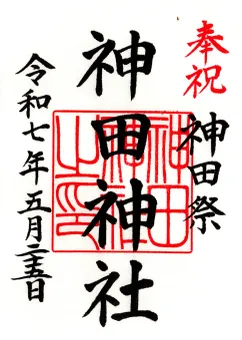 奉祝
神田祭
神田神社
令和七年五月二五日